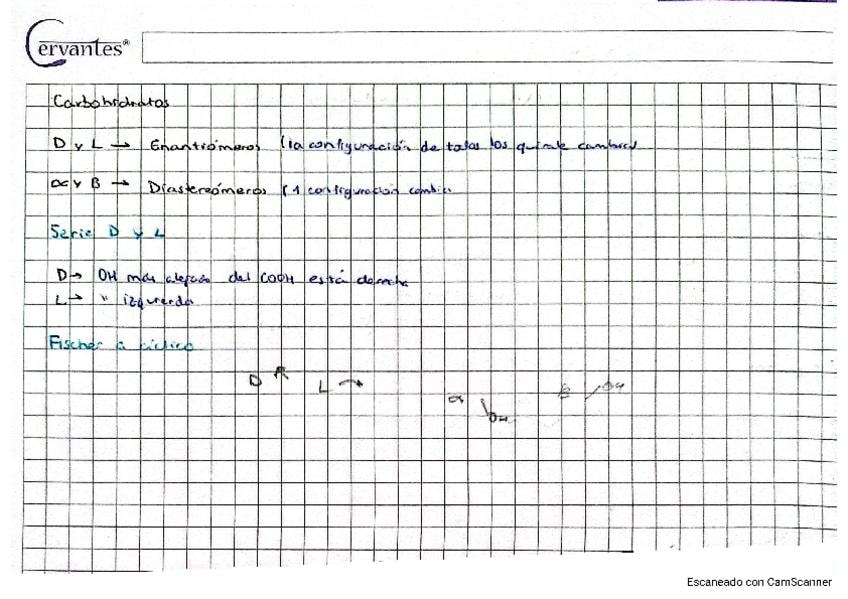 Cervantes®
Carbohidratos
D y L → Enantiómeros (la configuración de todos los quirale cambia)
α y B → Diastereómeros (1 configuración cambia
Serie D y L
D → OH más alejado del COOH está derecha
L → " izquierda
Fischer a cíclico
D L
α OH B OH
Escaneado con CamScanner